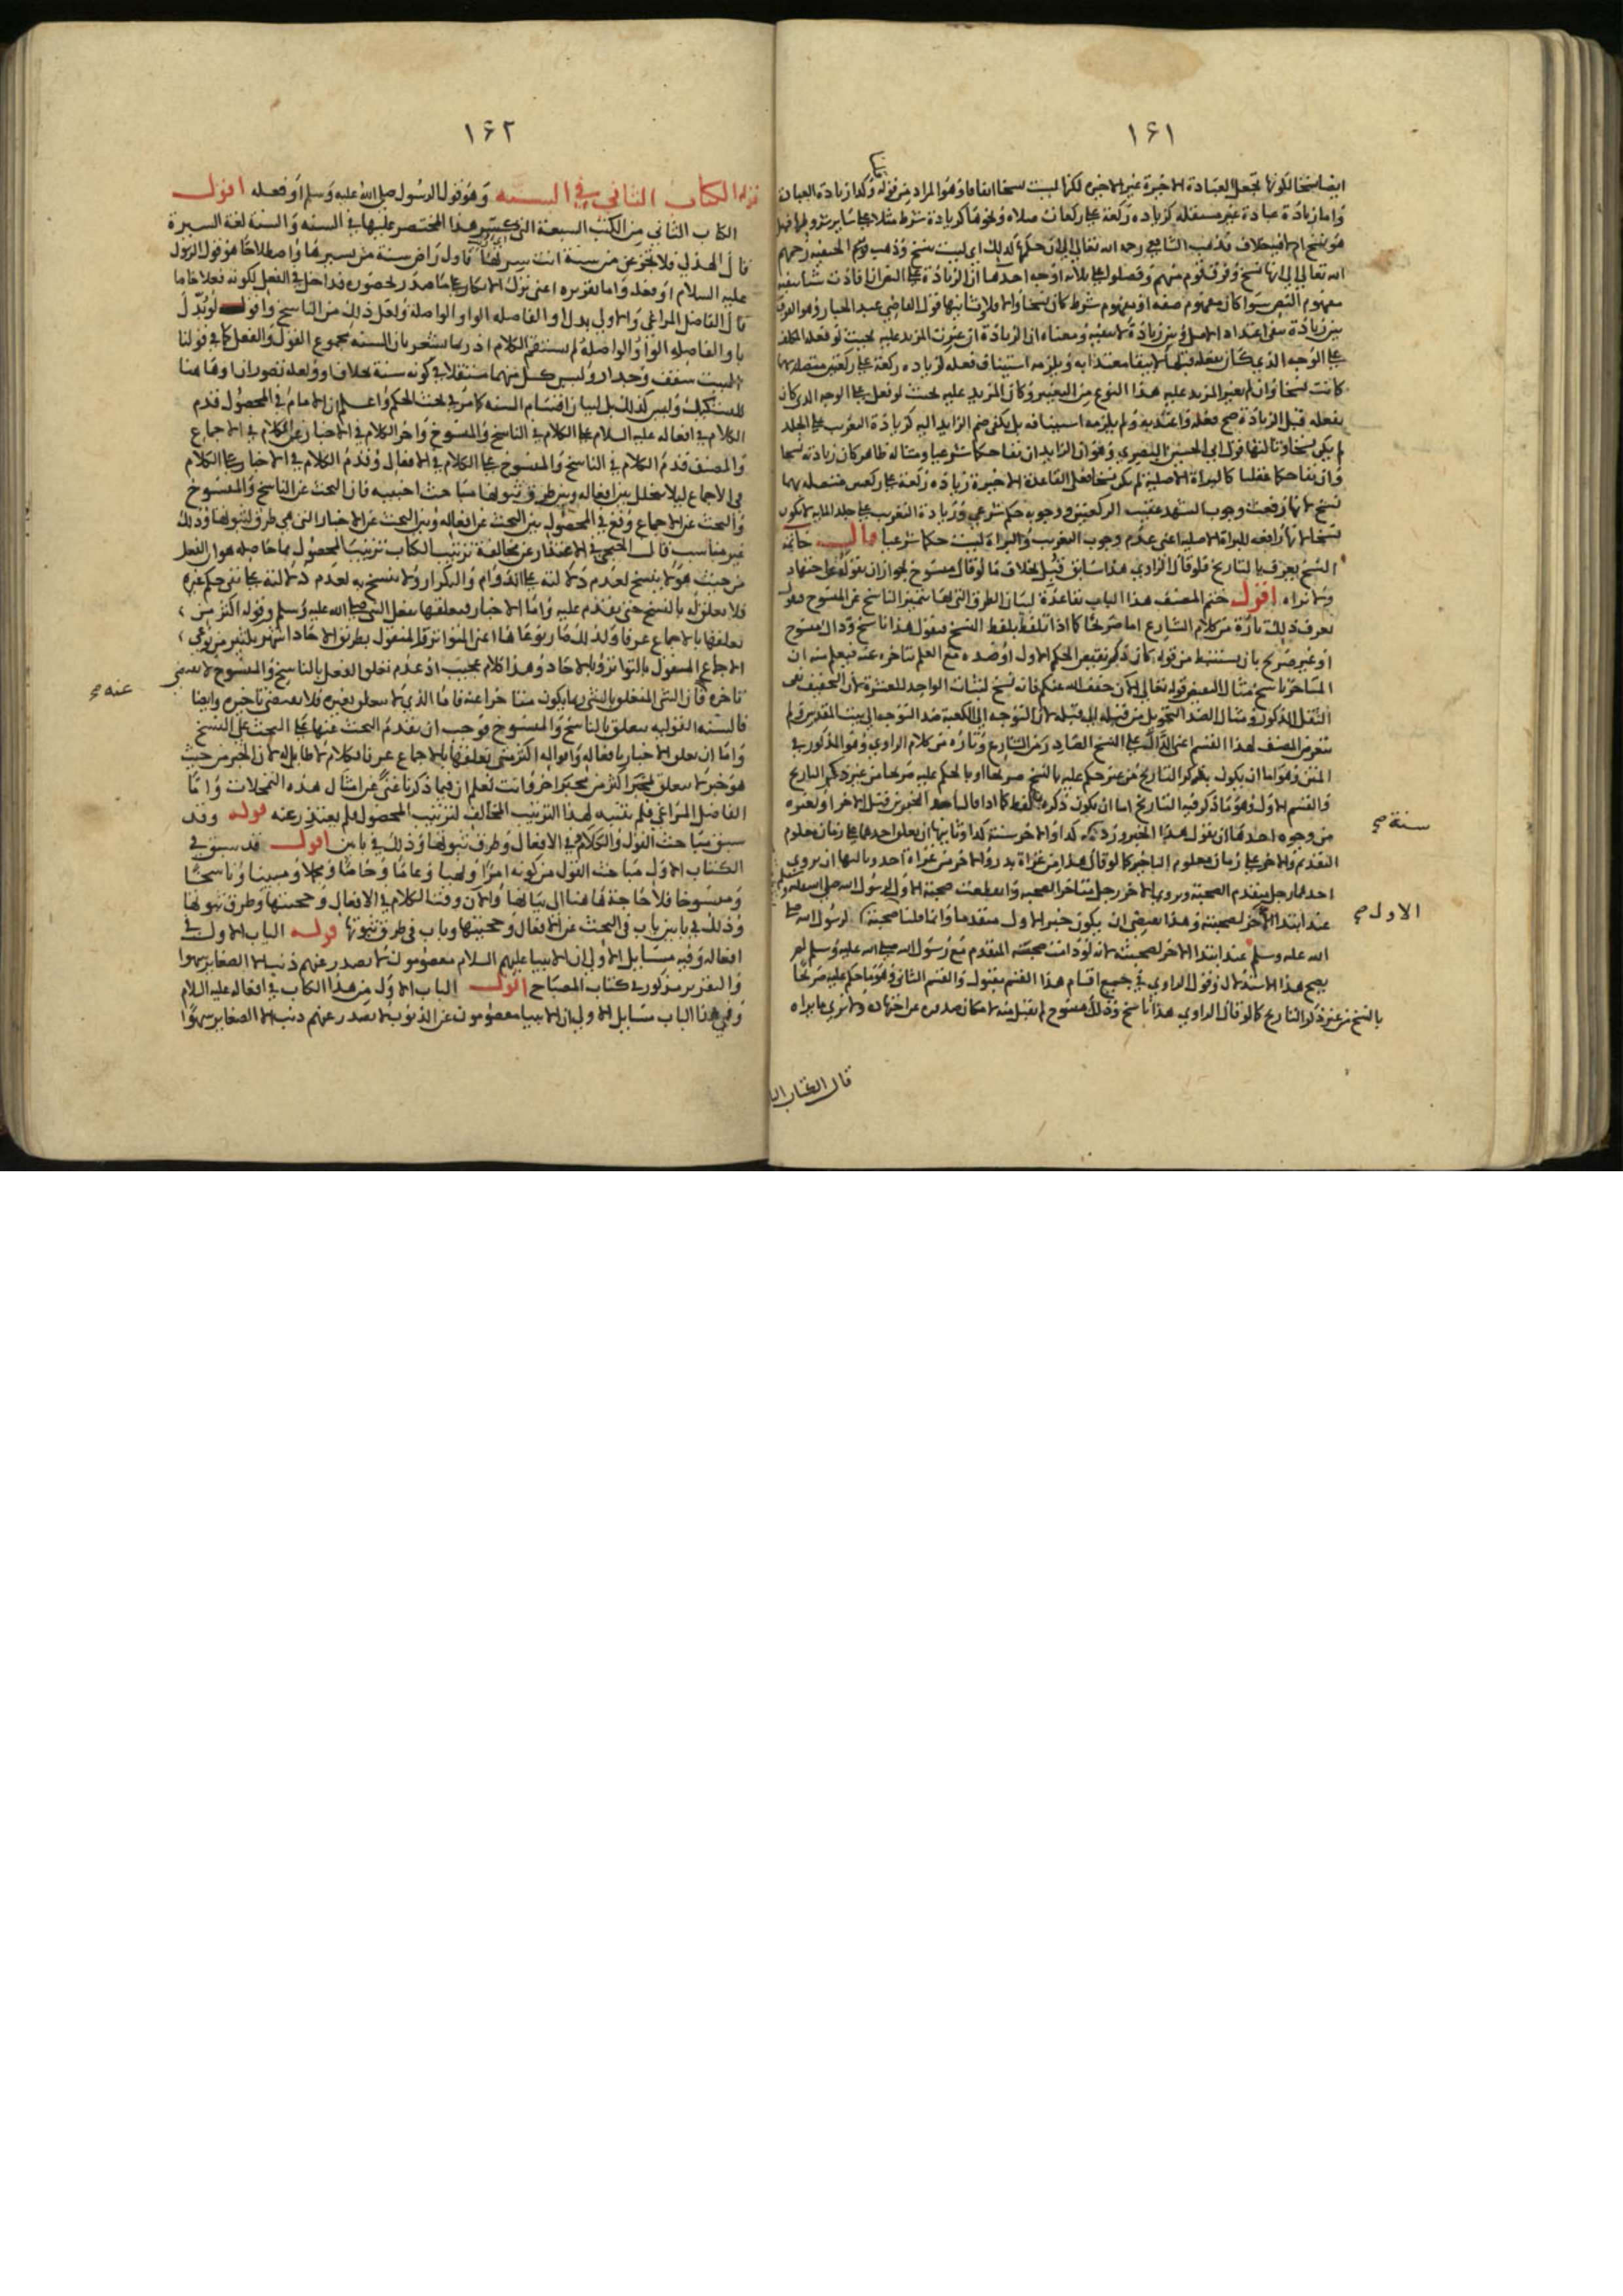 ١٦١
ايضا نسخا لكونها تجعل العبادة الاخيرة غير الاخيرة لكنها ليست نسخا اتفاقا وهو المراد من قوله وكذا زيادة العبادة
واما زيادة عبادة غير مستقلة كزيادة ركعة على ركعات صلاة ونحوها كزيادة شرط مثلا على سائر شروطها فهل
هو نسخ ام لا فيه خلاف فذهب الشافعي رحمه الله تعالى الى ان حكمها كذلك اي ليست بنسخ وذهب قوم الحنفية رحمهم
الله تعالى الى انها نسخ وفرق قوم منهم وفصلوا على ثلاثة اوجه احدها ان الزيادة على النص ان افادت شيا ينفيه
مفهوم النص سوا كان مفهوم صفة او مفهوم شرط كان نسخا والا فلا وثانيها قول القاضي عبد الجبار وهو الفرق
بين زيادة تنفي اعتداد الاصل وبين زيادة لا تنفيه ومعناه ان الزيادة ان غيرت المزيد عليه بحيث لو فعله المكلف
على الوجه الذي كان يفعله قبلها لا يبقى معتدا به ويلزمه استيناف فعله كزيادة ركعة على ركعتين متصلة بهما
كانت نسخا وان لم يغير المزيد عليه هذا النوع من التغيير وكان المزيد عليه بحيث لو فعل على الوجه الذي كان
يفعله قبل الزيادة صح فعله واعتد به ولم يلزمه استينافه بل يكفي ضم الزايد اليه كزيادة التغريب على الجلد
لم يكن نسخا وثالثها قول ابي الحسين البصري وهو ان الزايد ان نفا حكما شرعيا ومثاله ظاهر كان زيادته نسخا
وان نفا حكما عقليا كالبراة الاصلية لم يكن نسخا فعلى القاعدة الاخيرة زيادة ركعة على ركعتين متصلة بهما
نسخ لانها رفعت وجوب التشهد عقيب الركعتين ووجوبه حكم شرعي وزيادة التغريب على جلد الماية لا يكون
نسخا لانها رافعة للبراة الاصلية اعني عدم وجوب التغريب والبراة ليست حكما شرعيا قال خاتمة
النسخ يعرف بالتاريخ فلو قال الراوي هذا سابق قبل بخلاف ما لو قال منسوخ لجواز ان يقوله عن اجتهاد
ولا نراه اقول ختم المصنف هذا الباب بقاعدة لبيان الطرق التي بها يتميز الناسخ عن المنسوخ فنقول
يعرف ذلك تارة من كلام الشارع اما صريحا كما اذا تلفظ بلفظ النسخ فيقول هذا ناسخ وذاك منسوخ
او غير صريح بان يستنبط من قوله كان ذكر نقيض الحكم الاول او ضده مع العلم بتاخره عنه فيعلم منه ان
المتاخر ناسخ مثال النقيض قوله تعالى الان خفف الله عنكم فانه نسخ لثبات الواحد للعشرة لان التخفيف نفي
الثقل المذكور ومثال الضد التحويل من قبلة الى قبلة لان التوجه الى الكعبة ضد التوجه الى بيت المقدس ولم
يتعرض المصنف لهذا القسم اعني الدال على النسخ الصادر من الشارع وتارة من كلام الراوي وهو المذكور في
المتن وهو اما ان يكون بذكر التاريخ من غير حكم عليه بالنسخ صريحا او بالحكم عليه صريحا من غير ذكر التاريخ
والقسم الاول وهو ما ذكر فيه التاريخ اما ان يكون ذكره بلفظ كما اذا قال احد الخبرين قبل الاخر او لغيره
من وجوه احدها ان يقول هذا الخبر ورد سنة كذا والاخر سنة كذا وثانيها ان يعلق احدهما على زمان معلوم
التقدم والاخر على زمان معلوم التاخير كما لو قال هذا من غزاة بدر والاخر من غزاة احد وثالثها ان يروي
احدهما رجل متقدم الصحبة ويروي الاخر رجل متاخر الصحبة وانقطعت صحبة الاول للرسول الله صلى الله عليه وسلم
عند ابتدا الاخر لصحبته وهذا يقتضي ان يكون خبر الاول متقدما وانما قلنا صحبة لرسول الله صلى
الله عليه وسلم عند ابتدا الاخر لصحبته لانه لو دامت صحبة المتقدم مع رسول الله صلى الله عليه وسلم لم
يصح هذا الاستدلال وقول الراوي في جميع اقسام هذا القسم مقبول والقسم الثاني وهو ما حكم عليه صريحا
بالنسخ من غير ذكر التاريخ كما لو قال الراوي هذا ناسخ وذلك منسوخ لم يقبل منه لامكان صدوره عن اجتهاده ولا نري ما يراه
سنة صح
الاول صح
قال الكتاب
١٦٢
قوله الكتاب الثاني في السنة وهو قول الرسول صلى الله عليه وسلم او فعله اقول
الكتاب الثاني من الكتب السبعة التي كسر هذا المختصر عليها في السنة والسنة لغة السيرة
قال الهذلي فلا تجزعن من سنة انت سرتها فاول راض سنة من يسيرها واصطلاحا هو قول الرسول
عليه السلام او فعله واما تقريره اعني ترك الانكار على ما صدر بحضوره فداخل في الفعل لكونه فعلا خاصا
قال الفاضل المراغي والاولى بدل او الفاصلة الواو الواصلة ولعل ذلك من الناسخ واقول لو بدل
باو الفاصلة الواو الواصلة لم يستقم الكلام اذ ربما يشعر بان السنة مجموع القول والفعل كما في قولنا
البيت سقف وجدار وليس كل منهما مستقلا في كونه سنة بخلاف او ولعله تصور انها هاهنا
للتشكيك وليس كذلك بل لبيان اقسام السنة كما مر في بحث الحكم واعلم ان الامام في المحصول قدم
الكلام في افعاله عليه السلام على الكلام في الناسخ والمنسوخ واخر الكلام في الاخبار عن الكلام في الاجماع
والمصنف قدم الكلام في الناسخ والمنسوخ على الكلام في الافعال وقدم الكلام في الاخبار على الكلام
في الاجماع ليلا يتخلل بين افعاله وبين طرق ثبوتها مباحث اجنبية فان البحث عن الناسخ والمنسوخ
والبحث عن الاجماع وقع في المحصول بين البحث عن افعاله وبين البحث عن الاخبار التي هي طرق لثبوتها وذلك
غير مناسب قال الخنجي في الاعتذار عن مخالفة ترتيب الكتاب ترتيب المحصول بما حاصله هو ان الفعل
من حيث هو لا ينسخ لعدم دلالته على الدوام والتكرار ولا ينسخ به لعدم دلالته على نفي حكم غيره
فلا تعلق له بالنسخ حتى يقدم عليه واما الاخبار فتعلقها بفعل النبي صلى الله عليه وسلم وقوله اكثر من
تعلقها بالاجماع عرفا ولذلك
الاجماع المنقول بالتواتر وبالاحاد وهذا كلام عجيب اذ عدم تعلق الفعل بالناسخ والمنسوخ لا يقتضي
تاخره فان الشي المتعلق بالشي ربما يكون متاخرا عنه فاما الذي لا يتعلق بغيره فلا يقتضي تاخيره وايضا
فالسنة القولية يتعلق بالناسخ والمنسوخ فوجب ان يقدم البحث عنها على البحث على النسخ
واما ان تعلق الاخبار بافعاله واقواله اكثر من تعلقها بالاجماع عرفا فكلام لا طايل له لان الخبر من حيث
هو خبر لا يتعلق بمخبر اكثر من مخبر اخر وانت تعلم ان فيما ذكرنا غنى عن امثال هذه التمحلات واما
الفاضل المراغي فلم يتنبه لهذا الترتيب المخالف لترتيب المحصول فلم يعتذر عنه قوله وقد
سبق مباحث القول والكلام في الافعال وطرق ثبوتها وذلك في بابين اقول قد سبق في
الكتاب الاول مباحث القول من كونه امرا ونهيا وعاما وخاصا ومجملا ومبينا وناسخا
ومنسوخا فلا حاجة هاهنا الى بيانها والان وقت الكلام في الافعال وحجيتها وطرق ثبوتها
وذلك في بابين باب في البحث عن الافعال وحجيتها وباب في طرق ثبوتها قوله الباب الاول في
افعاله وفيه مسايل الاولى ان الانبيا عليهم السلام معصومون لا يصدر عنهم ذنب الا الصغاير سهوا
والتقرير مذكور في كتاب المصباح اقول الباب الاول من هذا الكتاب في افعاله عليه السلام
وفي هذا الباب مسايل الاولى ان الانبيا معصومون عن الذنوب لا يصدر عنهم ذنب الا الصغاير سهوا
عنه صح